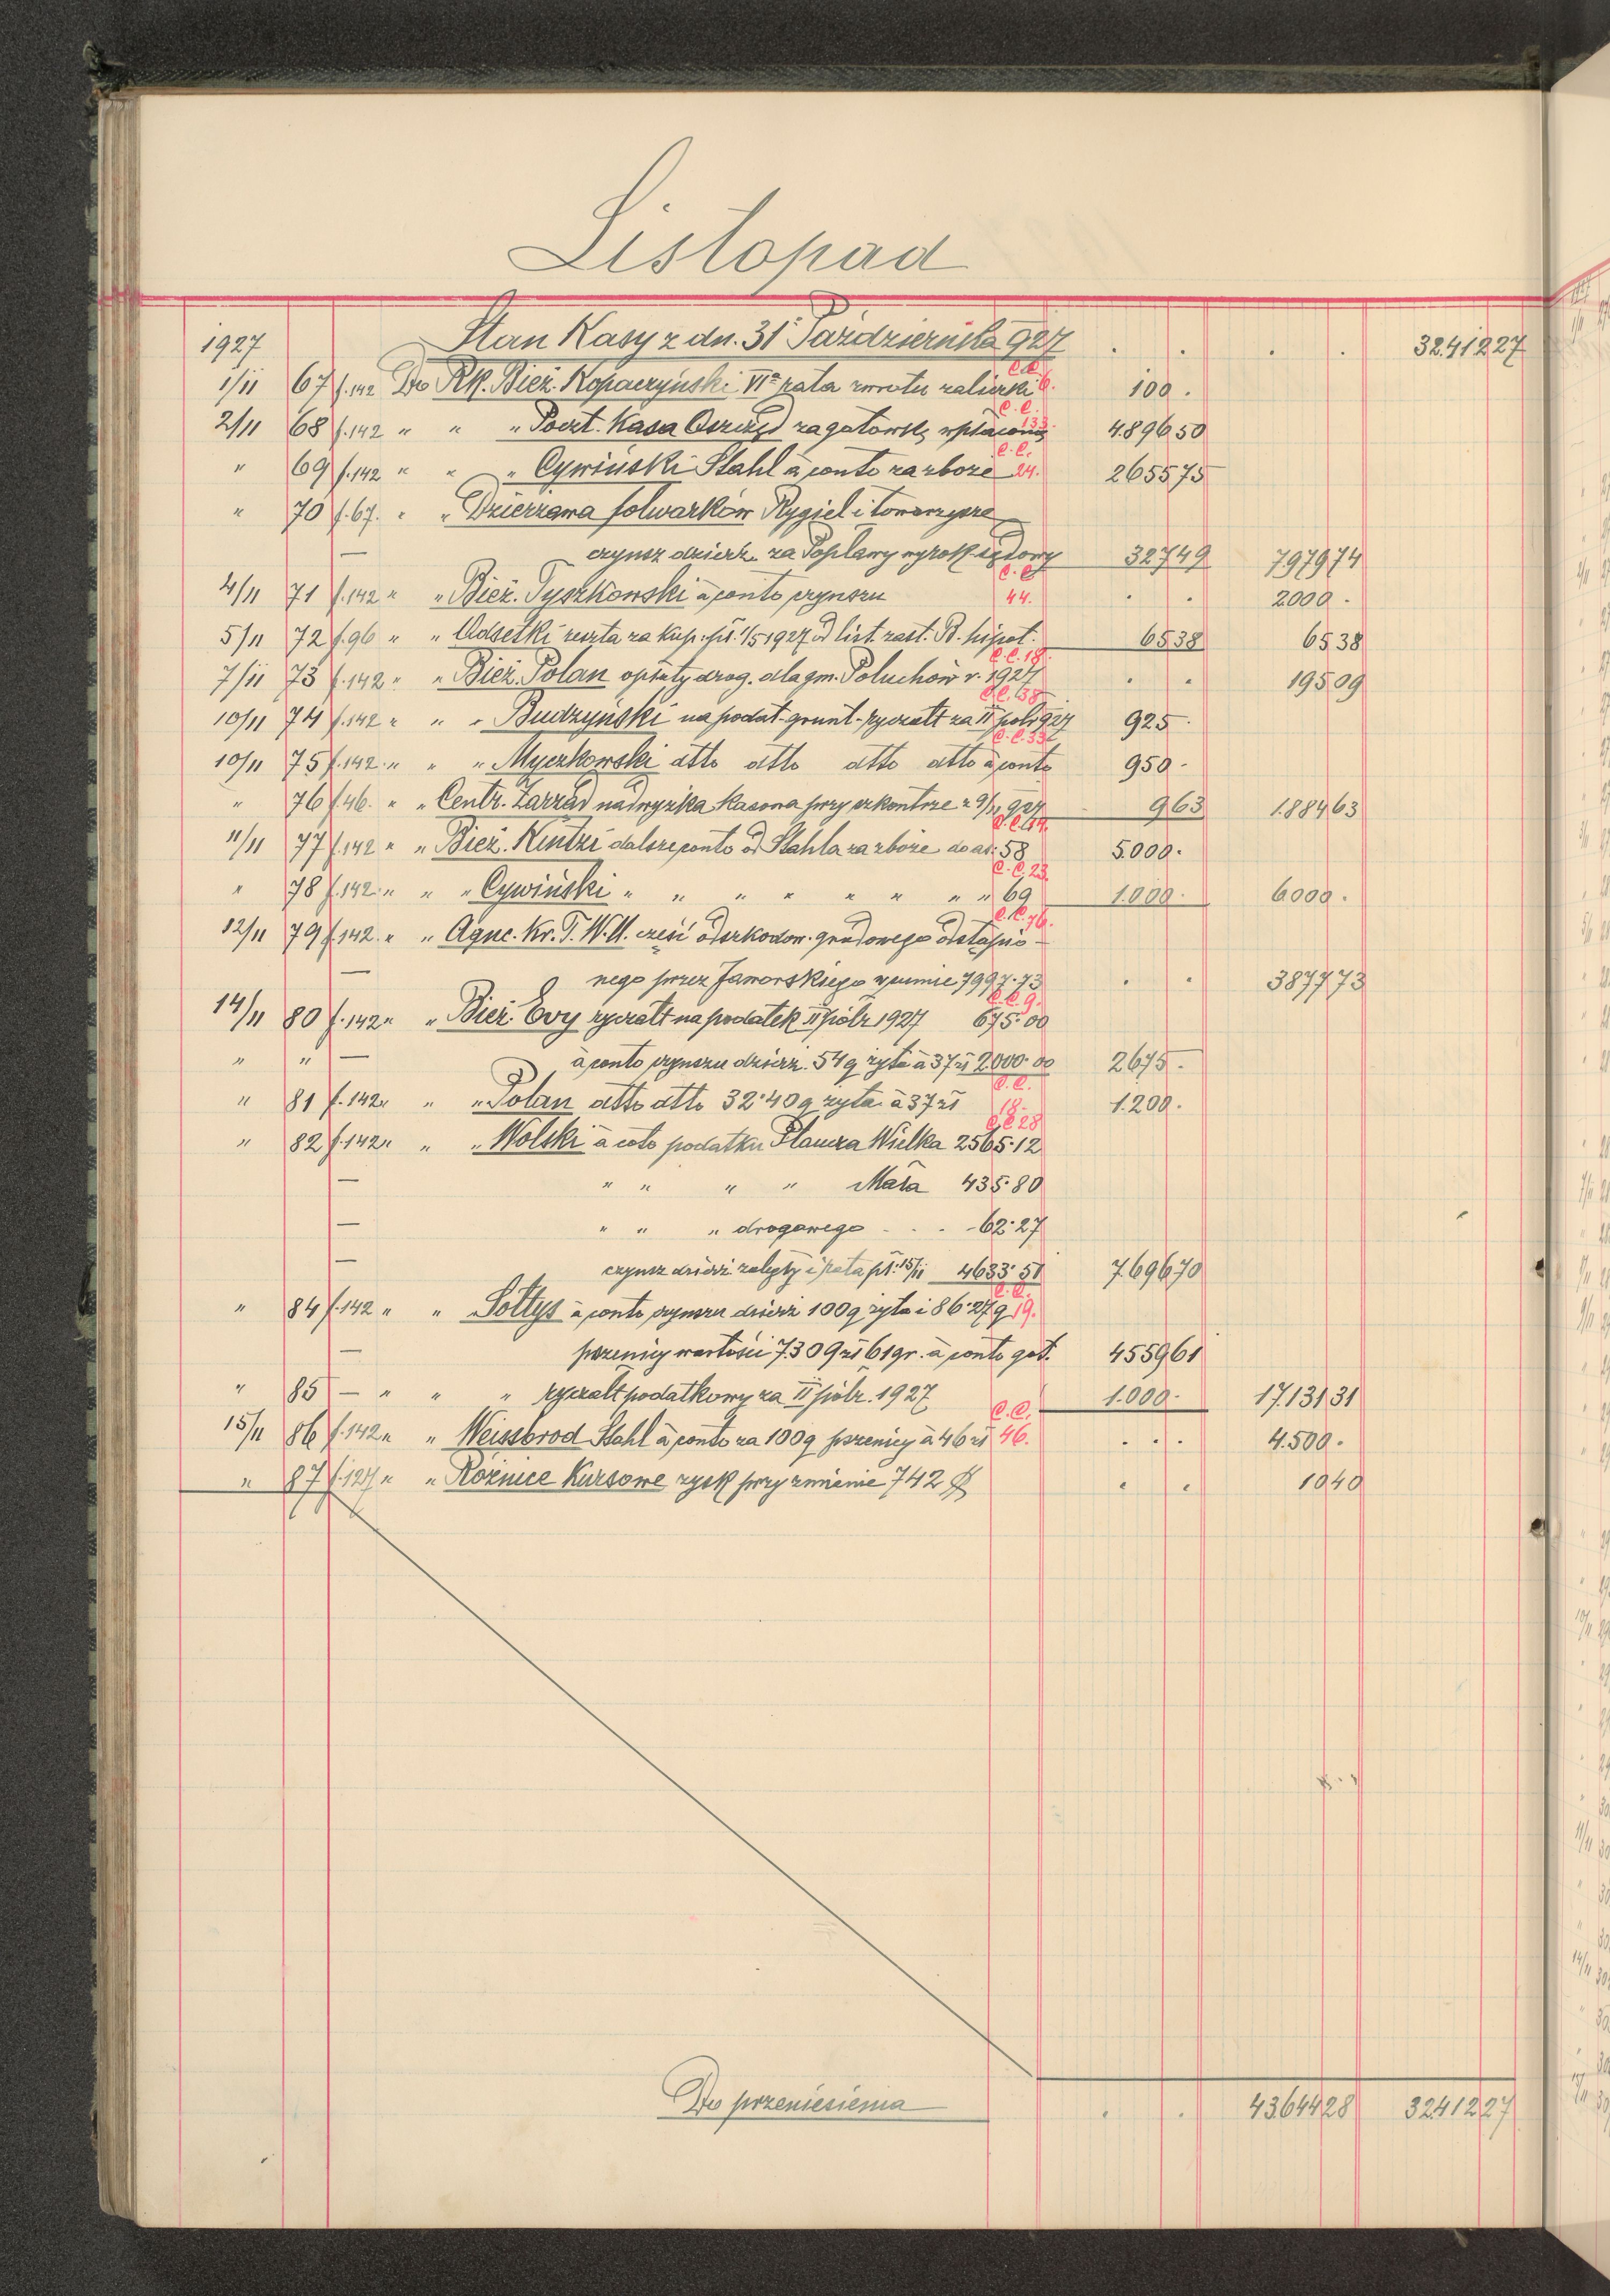 Listopad
1927 Stan Kasy z dn. 31 Października 927 . . . . 32.412 27
1/11 67 f.142 Do Rk. Bież. Kopaczyński VIa rata zwrotu zaliczki C.C. 6. 100 .
2/11 68 f.142 " " " Poczt. Kasa Oszczęd za gotówkę wpłaconą C.C. 133. 4.896 50
" 69 f.142 " " " Cywiński Stahl à conto za zboże C.C. 24. 2655 75
" 70 f.67. " " Dzierżawa folwarków Rygiel i towarzysze
— czynsz dzierż. za Popławy wyrok sądowy 327 49 7979 74
4/11 71 f.142 " " Bież. Tyszkowski à conto czynszu C.C. 44. . . 2000 .
5/11 72 f.96 " " Odsetki reszta za kup. pł. 1/5 1927 od list. zast. B. hipot. 65 38 65 38
7/11 73 f.142 " " Bież. Polan opłaty drog. dla gm. Poluchów r. 1927 C.C. 18. . . 195 09
10/11 74 f.142 " " " Budzyński na podat. grunt. ryczałt za II poł. 927 C.C. 38. 925 .
10/11 75 f.142 " " " Myczkowski dtto dtto dtto dtto à conto C.C. 33. 950 -
" 76 f.46. " " Centr. Zarząd nadwyżka kasowa przy szkontrze z 9/11 927 9 63 1.884 63
11/11 77 f.142 " " Bież. Kintzi dalsze conto od Stahla za zboże do at. 58 C.C. 14. 5.000 .
" 78 f.142 " " " Cywiński " " " " " " " " 69 C.C. 23. 1.000 . 6000 .
12/11 79 f.142 " " Agnc. Kr. T. W. U. część odszkodow. gradowego odstąpio- C.C. 76.
— nego przez Jaworskiego w sumie 7997.73 . . 3877 73
14/11 80 f.142 " " Bież. Evy ryczałt na podatek II półr 1927 675.00 C.C. 9.
" " — à conto czynszu dzierż. 54 q żyta à 37 zł 2000.00 2675 .
" 81 f.142 " " " Polan dtto dtto 32.40 q żyta à 37 zł C.C. 18. 1.200 .
" 82 f.142 " " " Wolski à cto podatku Płaucza Wielka 2565.12 C.C. 28
— " " " " Mała 435.80
— " " " drogowego . . . - 62.27
— czynsz dzierż. zaległy i rata pł. 15/11 4633.51 7.696 70
" 84 f.142 " " " Sołtys à conto czynszu dzierż. 100 q żyta i 86.27 q C.C. 19.
— pszenicy wartości 7.309 zł 61 gr. à conto got. 4559 61
" 85 — " " " ryczałt podatkowy za II półr. 1927 1.000 - 17.131 31
15/11 86 f.142 " " Weissbrod Stahl à conto za 100 q pszenicy à 46 zł C.C. 46. . . . 4.500 .
" 87 f.127 " " Różnice Kursowe zysk przy zmianie 742 $ . . 10 40
Do przeniesienia . . 43.644 28 32412 27